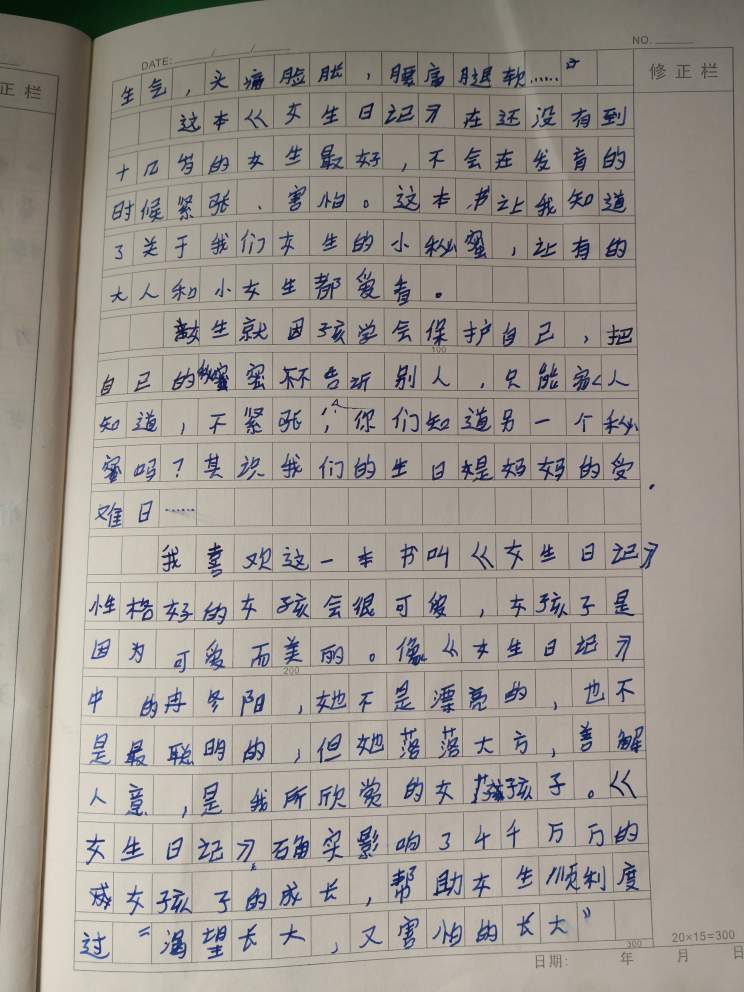 正栏
DATE: / /
NO.
修正栏
生气，头痛脸胀，腰痛腿软……。
这本《女生日记》在还没有到
十几岁的女生最好，不会在发育的
时候紧张、害怕。这本书让我知道
了关于我们女生的小秘蜜，让有的
大人和小女生都爱看。
女生就因孩学会保护自己，把
自己的秘密不告诉别人，只能家人
知道，不紧张，你们知道另一个秘
蜜吗？其识我们的生日是妈妈的受
难日……
我喜欢这一本书叫《女生日记》
性格好的女孩会很可爱，女孩子是
因为可爱而美丽。像《女生日记》
中的冉冬阳，她不是漂亮的，也不
是最聪明的，但她落落大方，善解
人意，是我所欣赏的女孩子。《
女生日记》确实影响了千千万万的
女孩子的成长，帮助女生顺利度
过“渴望长大，又害怕的长大”
100
200
300
20×15=300
日期： 年 月 日